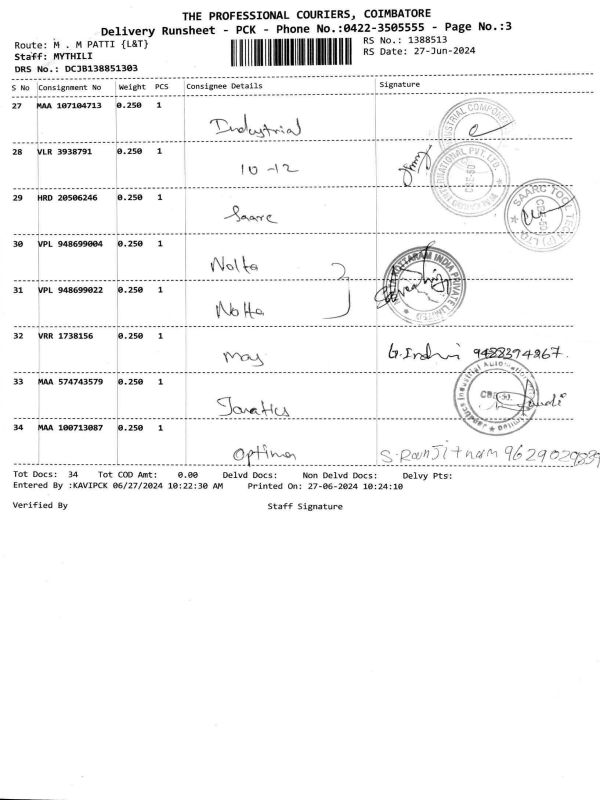 THE PROFESSIONAL COURIERS, COIMBATORE
Delivery Runsheet - PCK - Phone No.:0422-3505555 - Page No.:3
Route: M . M PATTI {L&T}
RS No.: 1388513
Staff: MYTHILI
RS Date: 27-Jun-2024
DRS No.: DCJB138851303
S No Consignment No Weight PCS Consignee Details Signature
27 MAA 107104713 0.250 1
Industrial
28 VLR 3938791 0.250 1
10-12
29 HRD 20506246 0.250 1
Saarc
30 VPL 948699004 0.250 1
Nolta
31 VPL 948699022 0.250 1
Nolta
32 VRR 1738156 0.250 1
May G.Indhu 9422394267.
33 MAA 574743579 0.250 1
34 MAA 100713087 0.250 1
Optima S.Ranjitham 9629029839
Tot Docs: 34 Tot COD Amt: 0.00 Delvd Docs: Non Delvd Docs: Delvy Pts:
Entered By :KAVIPCK 06/27/2024 10:22:30 AM Printed On: 27-06-2024 10:24:10
Verified By Staff Signature
SAARC TOOL TECH (P) LTD.